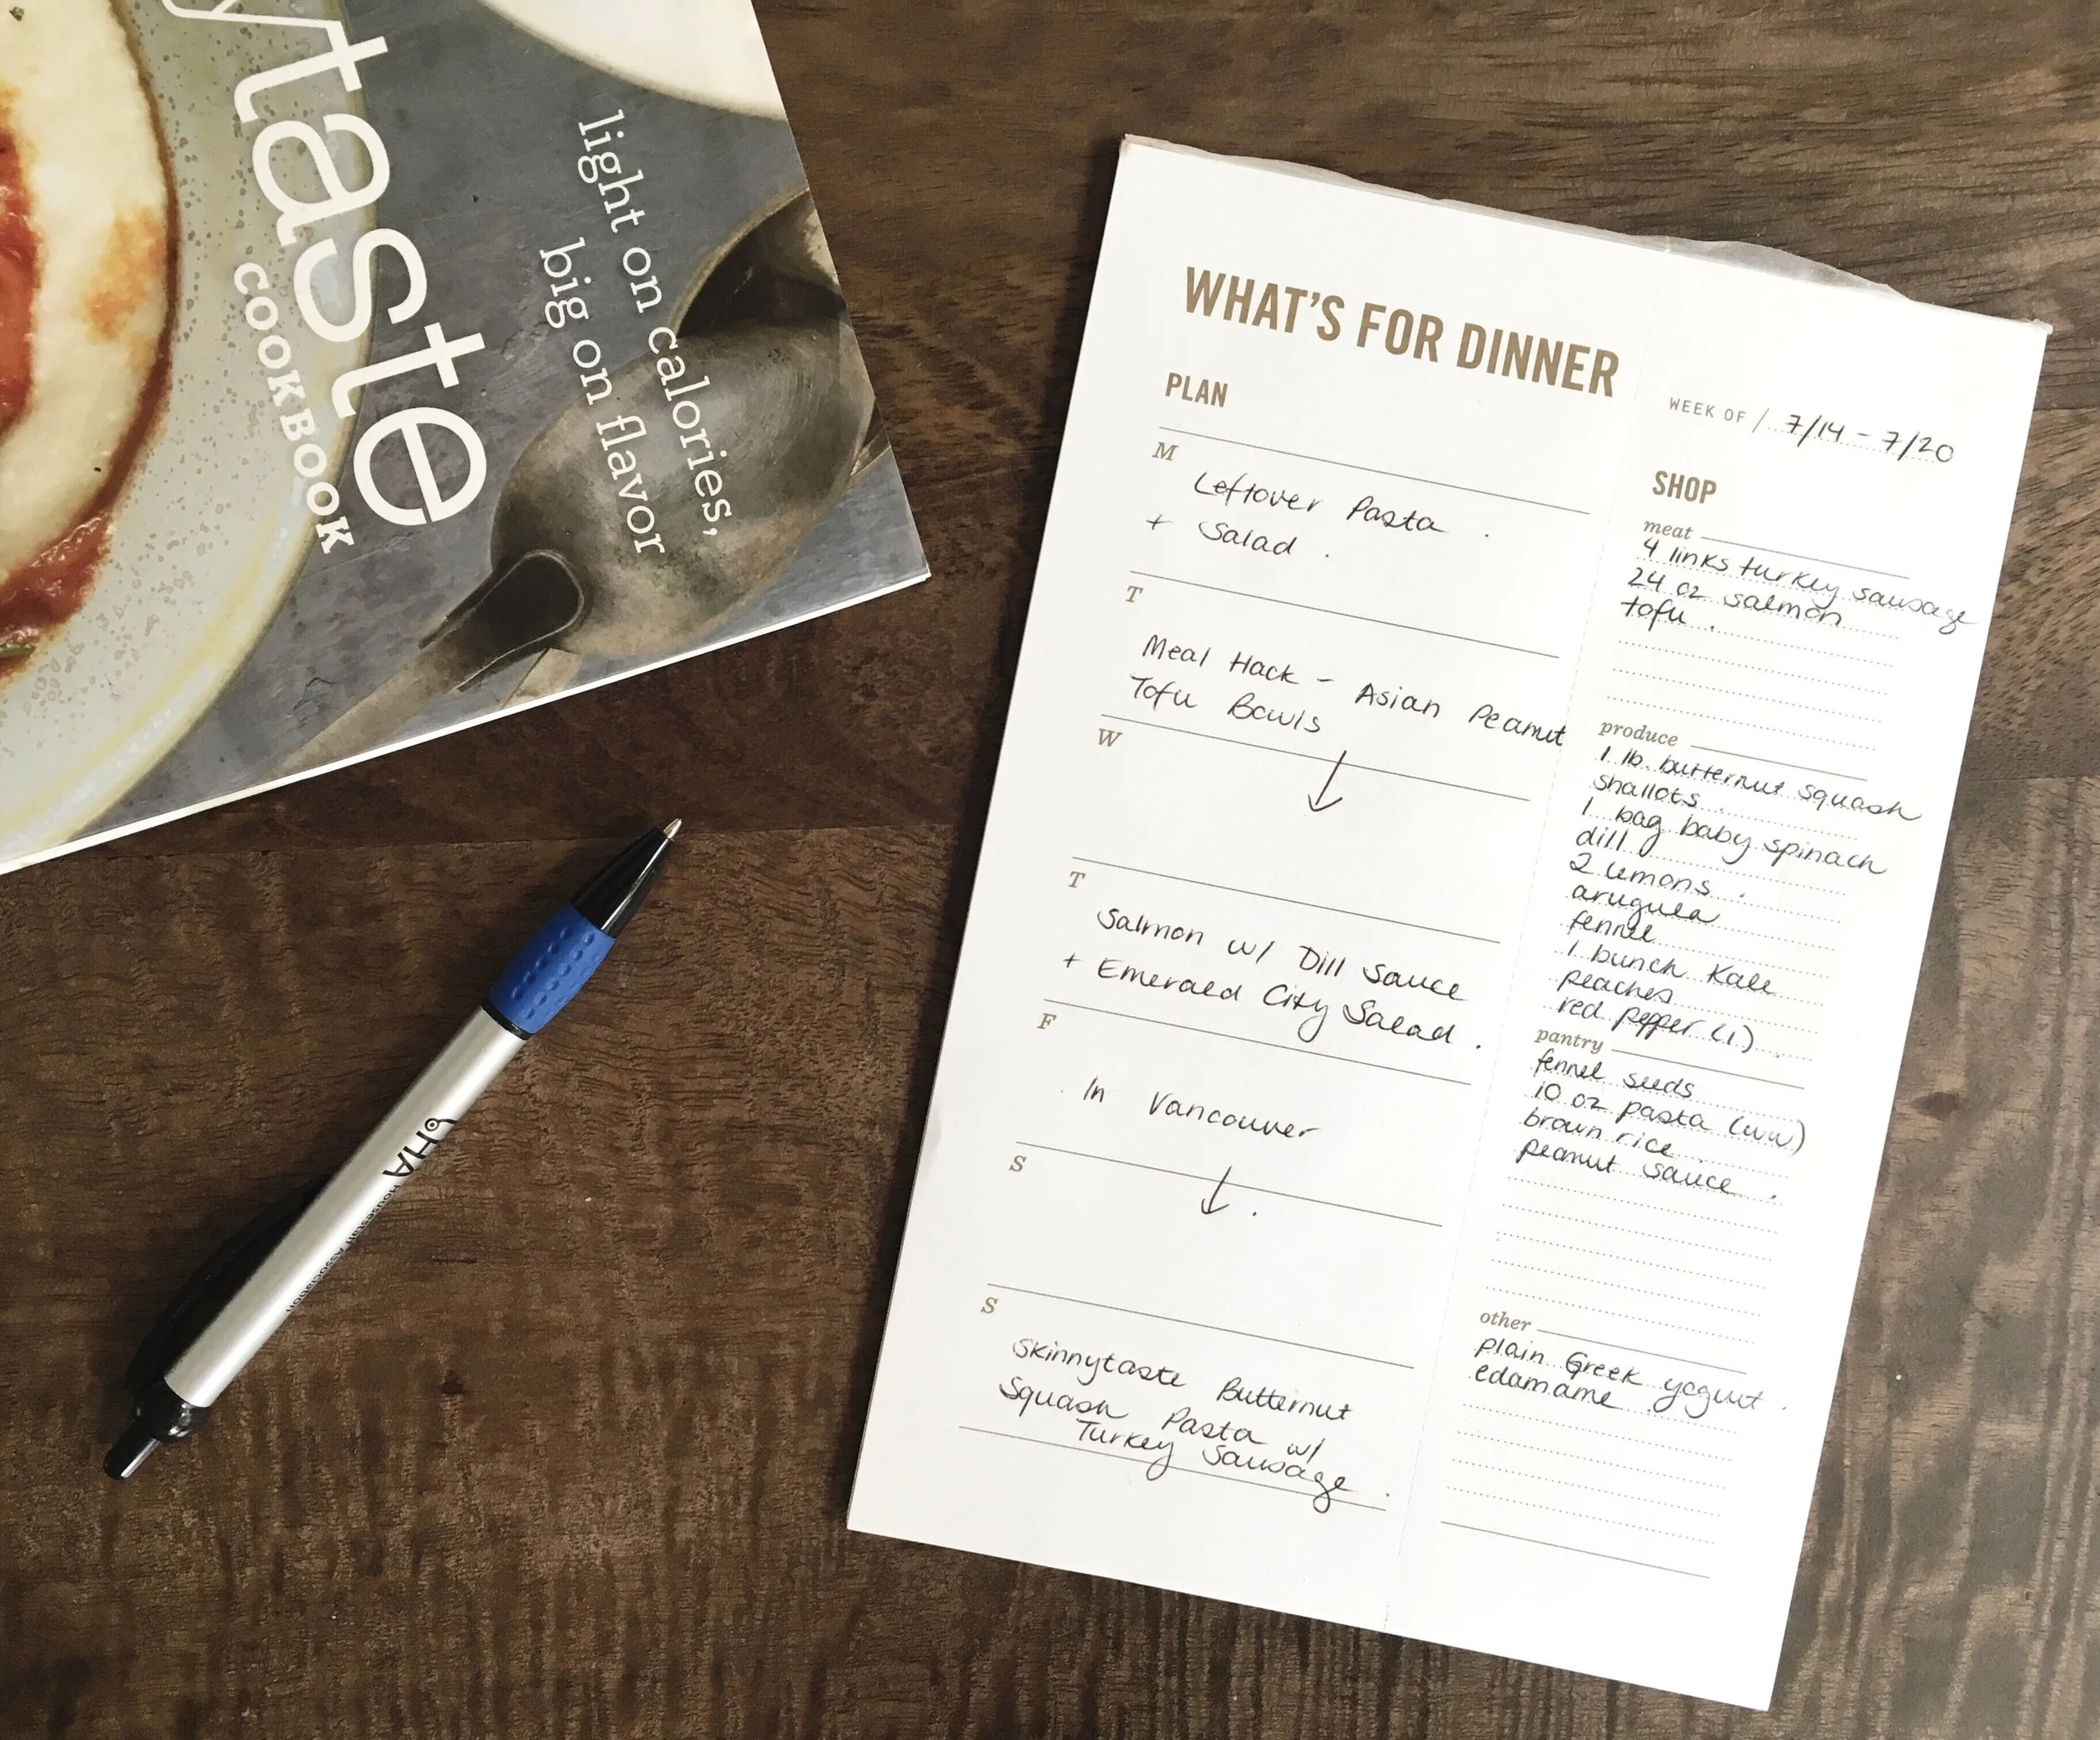 ytaste
COOKBOOK
light on calories,
big on flavor
HA
Housestaff Association
WHAT'S FOR DINNER
PLAN
WEEK OF / 7/14 - 7/20
M
Leftover Pasta
+ Salad
T
Meal Hack - Asian Peanut
Tofu Bowls
W
↓
T
Salmon w/ Dill Sauce
+ Emerald City Salad.
F
In Vancouver
S
↓
S
Skinnytaste Butternut
Squash Pasta w/
Turkey Sausage.
SHOP
meat
4 links turkey sausage
24 oz salmon
tofu
produce
1 lb butternut squash
shallots
1 bag baby spinach
dill
2 lemons
arugula
fennel
1 bunch kale
peaches
red pepper (1)
pantry
fennel seeds
10 oz pasta (ww)
brown rice
peanut sauce
other
plain Greek yogurt
edamame